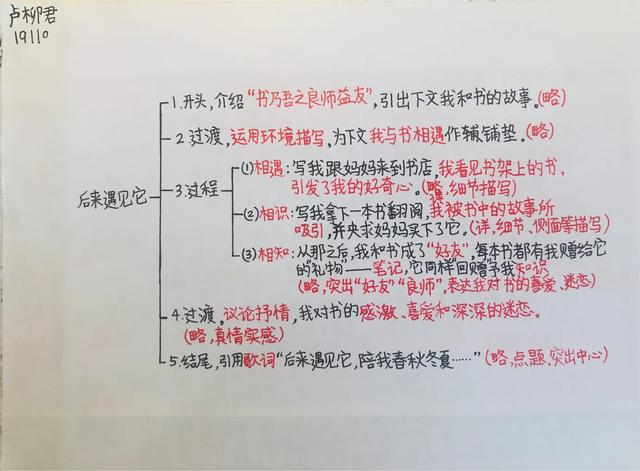 卢柳君
19110
1.开头，介绍“书乃吾之良师益友”，引出下文我和书的故事。(略)
2.过渡，运用环境描写，为下文我与书相遇作辅铺垫。(略)
后来遇见它
3.过程
(1)相遇：写我跟妈妈来到书店，我看见书架上的书，
引发了我的好奇心。(略，细节描写)
(2)相识：写我拿下一本书翻阅，我被书中的故事所
吸引，并央求妈妈买下了它。(详，细节、侧面等描写)
(3)相知：从那之后，我和书成了“好友”，每本书都有我赠给它
的“礼物”——笔记，它同样“回赠”予我知识
(略，突出“好友”“良师”，表达我对书的喜爱、迷恋)
4.过渡，议论抒情，我对书的感激、喜爱和深深的迷恋。
(略，真情实感)
5.结尾，引用歌词“后来遇见它，陪我春秋冬夏……”(略，点题，突出中心)